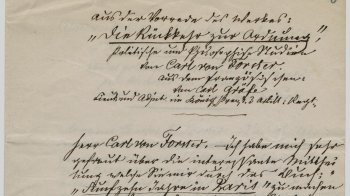 aus der Vorrede des Werkes:
"Die Rückkehr zur Ordnung."
Politische und Philosophische Studien
von Carl von Forster.
Aus dem Französischen.
von Carl Gräfe
Herr Carl von Forster. – ich habe mich sehr
gefreut über die interessante Mitthei-
lung welche Sie mir durch das Buch:
"Funfzehn Jahre in Paris" zu machen